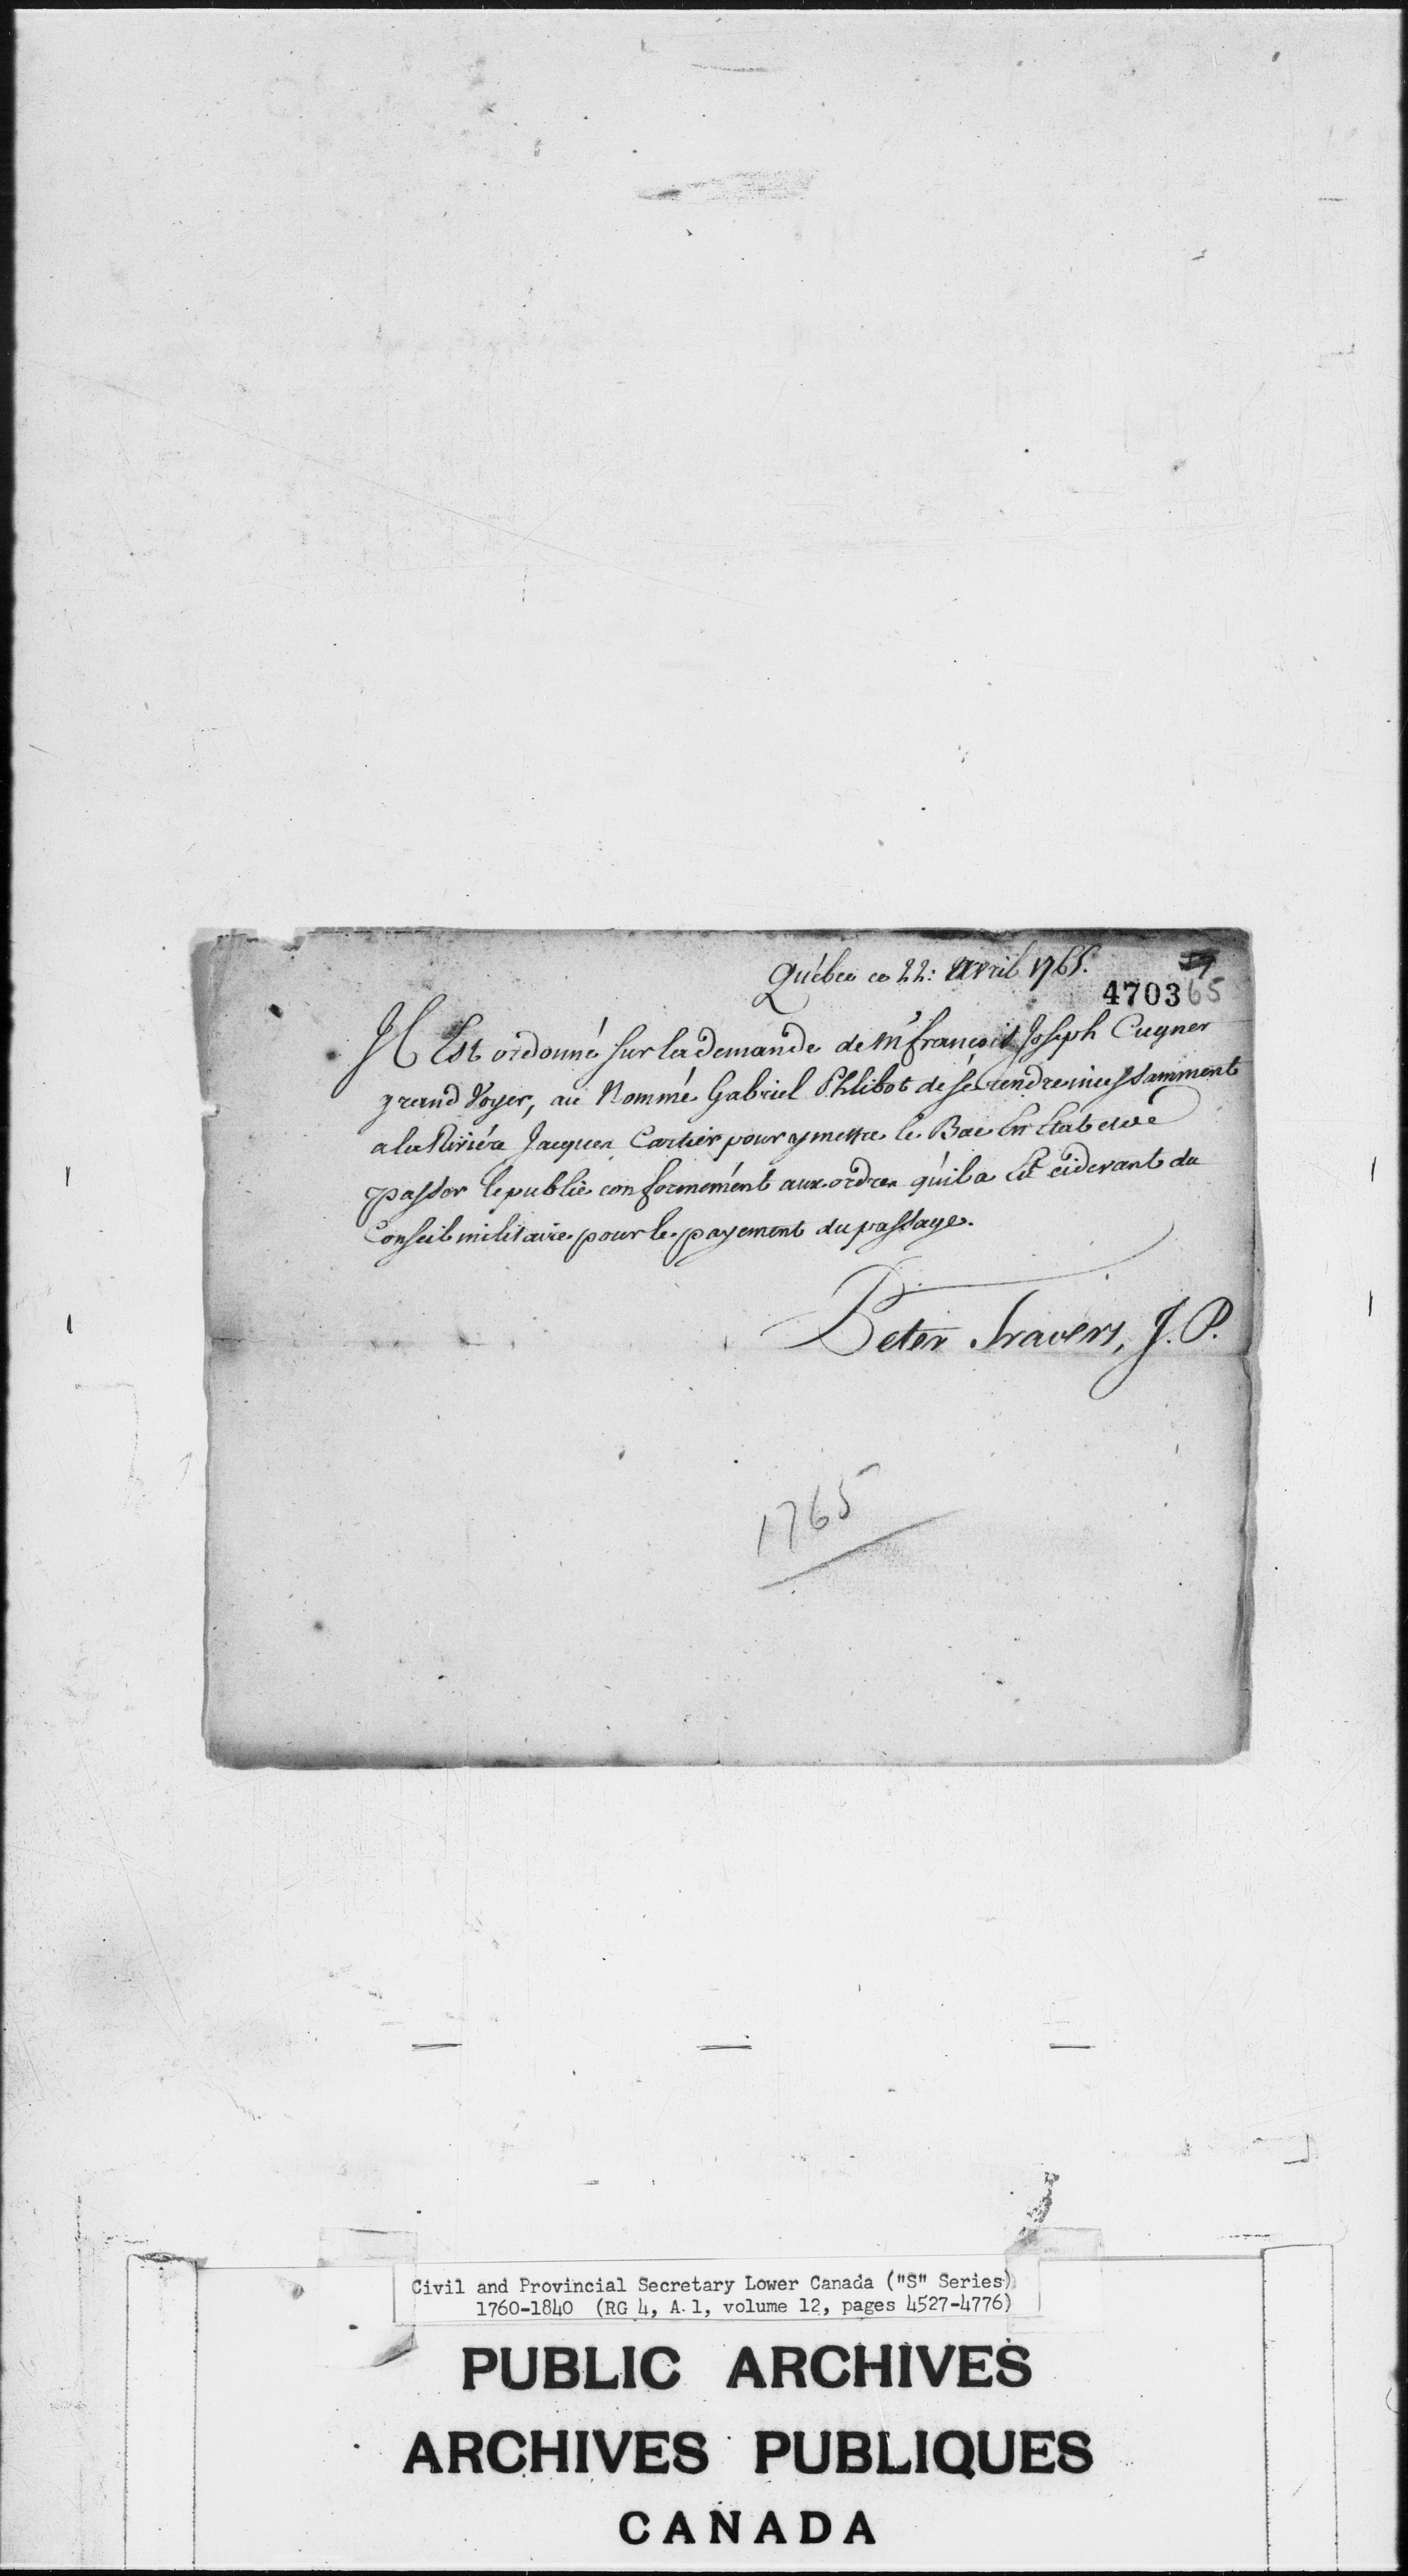 Québec ce 22: Avril 1765.
4703 65
Il Est ordonné sur la demande de Mr françois Joseph Cugnet
grand Voyer, au Nommé Gabriel Phlibot de sé rendre incessamment
a la Riviére Jacques Cartier pour y mettre le Bac En Etat et de
passer le public conformément aux ordres qu'il a Eû cidevant du
Conseil militaire pour le payement du passage.
Peter Travers, J. P.
1765
Civil and Provincial Secretary Lower Canada ("S" Series)
1760-1840 (RG 4, A.1, volume 12, pages 4527-4776)
PUBLIC ARCHIVES
ARCHIVES PUBLIQUES
CANADA